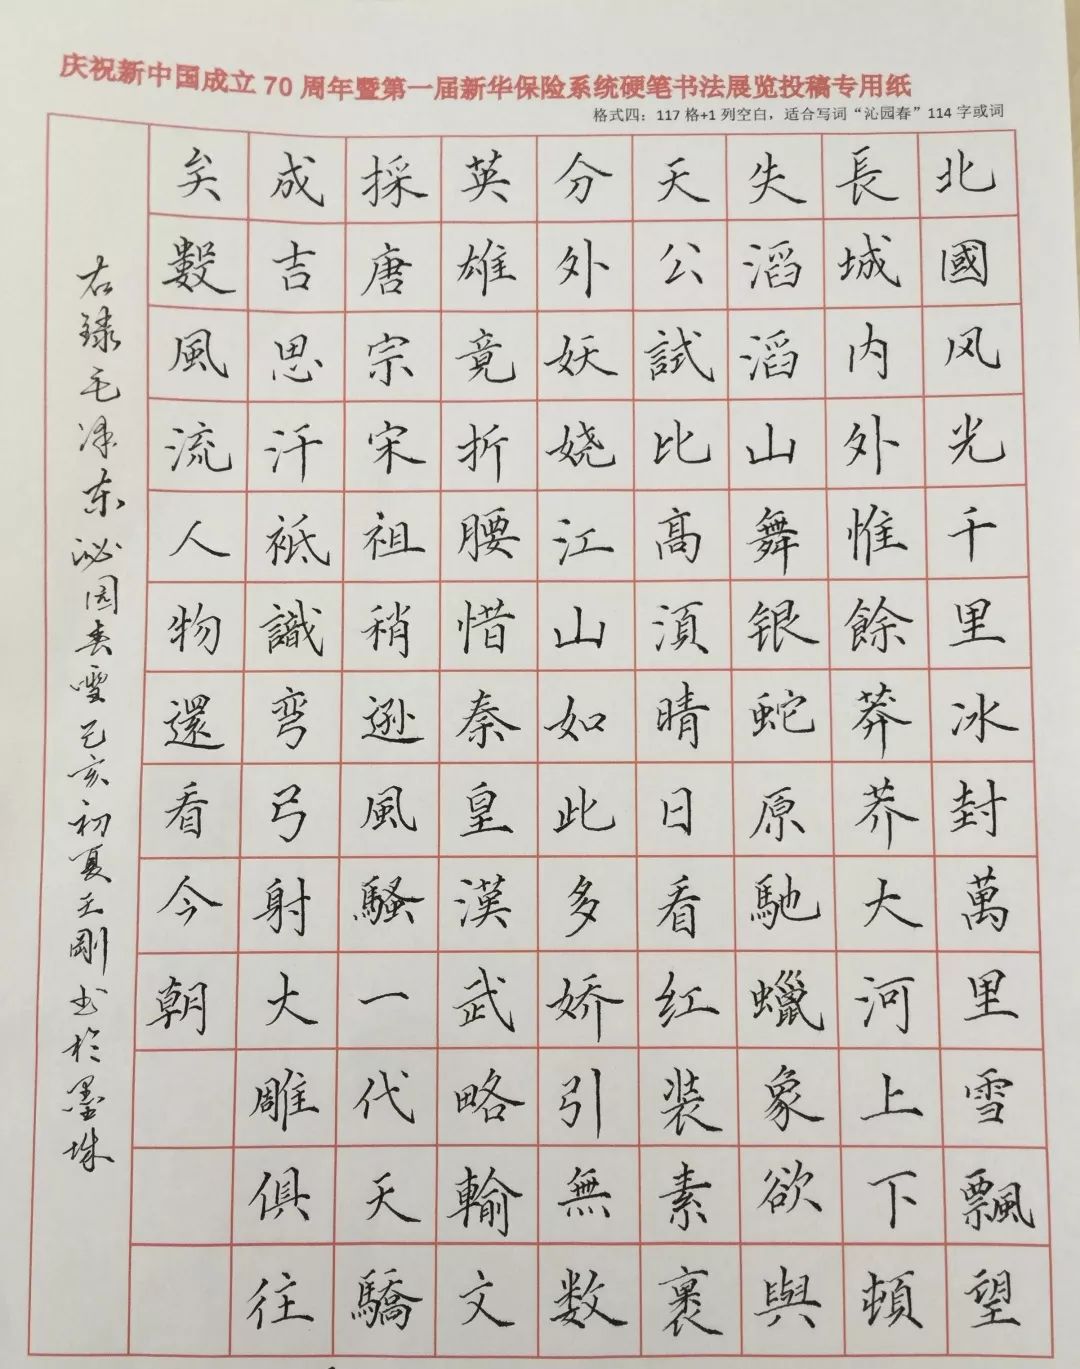 庆祝新中国成立70周年暨第一届新华保险系统硬笔书法展览投稿专用纸
格式四：117格+1列空白，适合写词“沁园春”114字或词
北國风光千里冰封萬里雪飄望
長城内外惟餘莽莽大河上下頓
失滔滔山舞银蛇原馳蠟象欲與
天公試比高須晴日看红装素裹
分外妖娆江山如此多娇引無数
英雄竟折腰惜秦皇漢武略輸文
採唐宗宋祖稍逊風騷一代天驕
成吉思汗祗識弯弓射大雕俱往
矣數風流人物還看今朝
右録毛泽东沁园春雪己亥初夏王剛书於墨